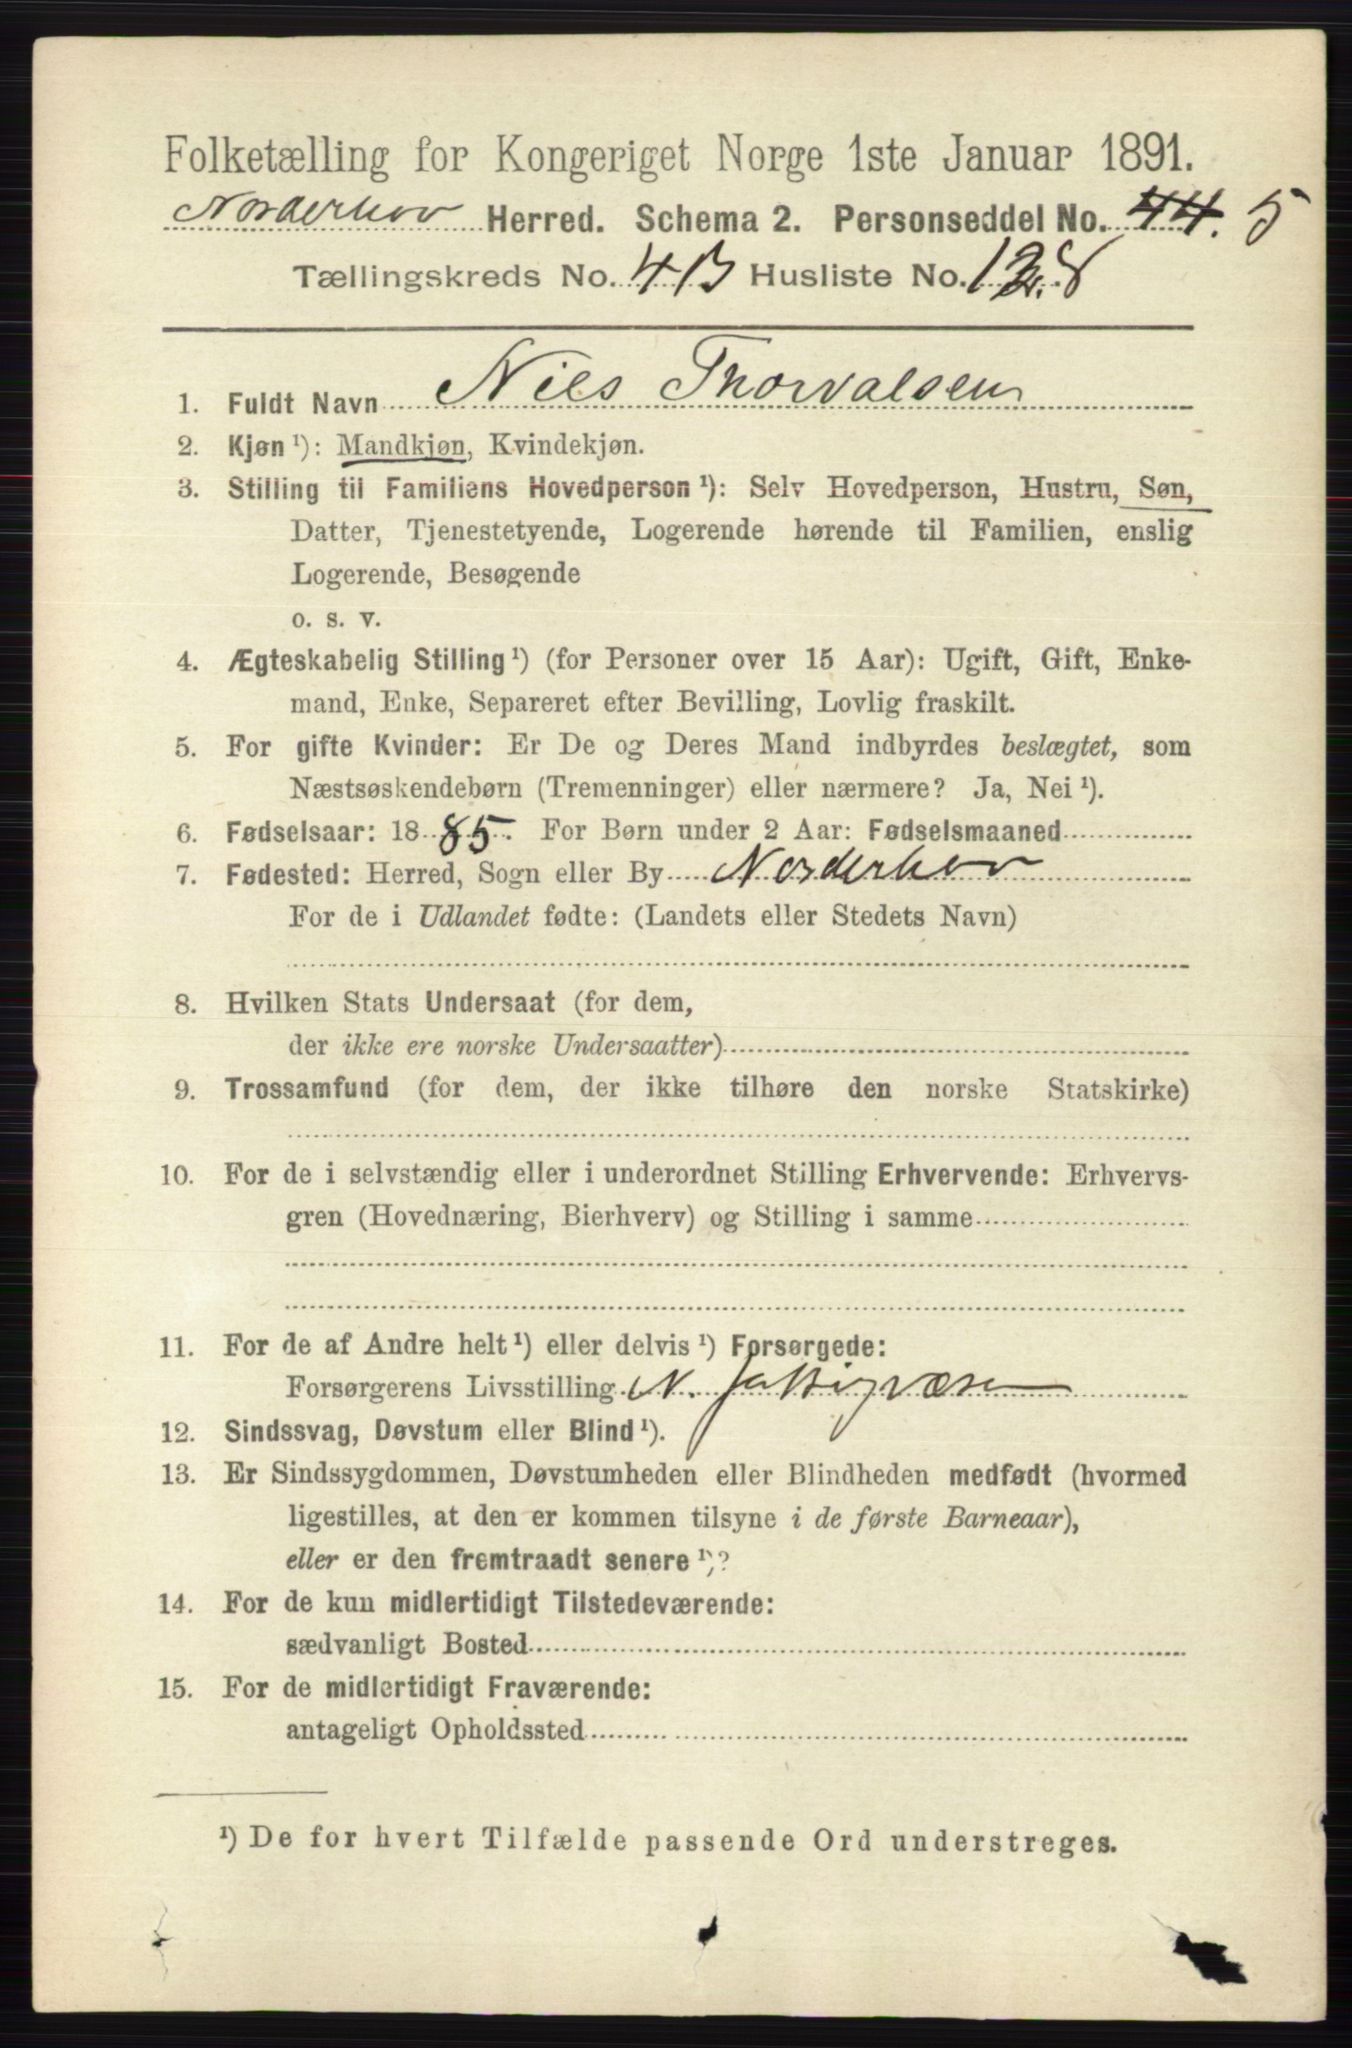 Folketælling for Kongeriget Norge 1ste Januar 1891.
Norderhov Herred. Schema 2. Personseddel No. 44. 5
Tællingskreds No. 4B Husliste No. 8
1. Fuldt Navn Nils Thorvalsen
2. Kjøn ¹): Mandkjøn, Kvindekjøn.
3. Stilling til Familiens Hovedperson ¹): Selv Hovedperson, Hustru, Søn,
Datter, Tjenestetyende, Logerende hørende til Familien, enslig
Logerende, Besøgende
o. s. v.
4. Ægteskabelig Stilling ¹) (for Personer over 15 Aar): Ugift, Gift, Enke-
mand, Enke, Separeret efter Bevilling, Lovlig fraskilt.
5. For gifte Kvinder: Er De og Deres Mand indbyrdes beslægtet, som
Næstsøskendebørn (Tremenninger) eller nærmere? Ja, Nei ¹).
6. Fødselsaar: 1885. For Børn under 2 Aar: Fødselsmaaned
7. Fødested: Herred, Sogn eller By Norderhov
For de i Udlandet fødte: (Landets eller Stedets Navn)
8. Hvilken Stats Undersaat (for dem,
der ikke ere norske Undersaatter)
9. Trossamfund (for dem, der ikke tilhøre den norske Statskirke)
10. For de i selvstændig eller i underordnet Stilling Erhvervende: Erhvervs-
gren (Hovednæring, Bierhverv) og Stilling i samme
11. For de af Andre helt ¹) eller delvis ¹) Forsørgede:
Forsørgerens Livsstilling N. fattigvæsen
12. Sindssvag, Døvstum eller Blind ¹).
13. Er Sindssygdommen, Døvstumheden eller Blindheden medfødt (hvormed
ligestilles, at den er kommen tilsyne i de første Barneaar),
eller er den fremtraadt senere ¹)?
14. For de kun midlertidigt Tilstedeværende:
sædvanligt Bosted
15. For de midlertidigt Fraværende:
antageligt Opholdssted
¹) De for hvert Tilfælde passende Ord understreges.